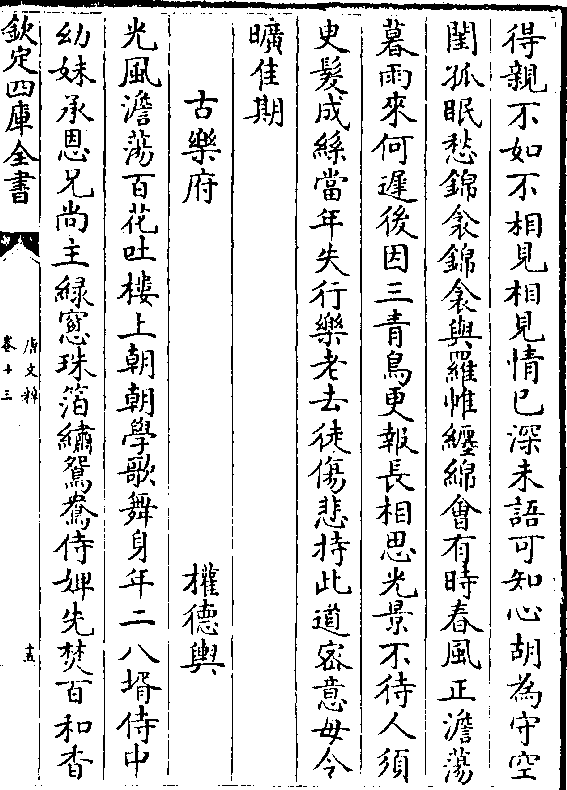 得親不如不相見相見情已深未語可知心胡為守空
閨孤眠愁錦衾錦衾與羅帷纏綿㑹有時春風正澹蕩
暮雨來何遲後因三青鳥更報長相思光景不待人須
㬰髮成絲當年失行樂老去徒傷悲持此道宻意毋令
曠佳期
古樂府　權德輿
光風澹蕩百花吐樓上朝朝學歌舞身年二八壻侍中
幼妹承恩兄尚主緑窓珠箔繡鴛鴦侍婢先焚百和香
欽定四庫全書
唐文粹
卷十三